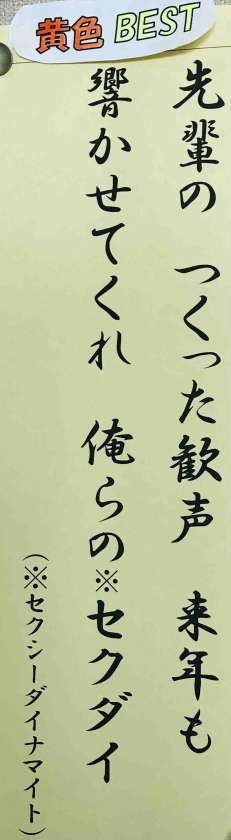 黄色 BEST
先輩の　つくった歓声　来年も
響かせてくれ　俺らの※セクダイ
（※セクシーダイナマイト）